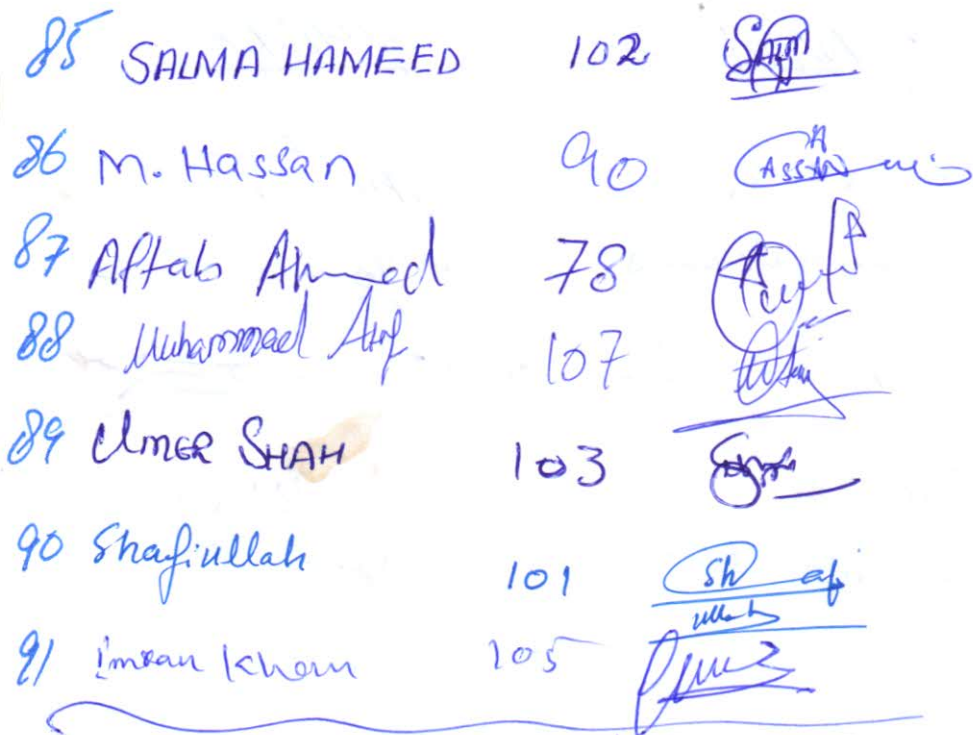 85 SALMA HAMEED 102
86 M. Hassan 90 ASSAN
87 Aftab Ahmed 78
88 Muhammad 107
89 UMER SHAH 103
90 Shafiullah 101 Sh af
ullah
91 Imran Khan 105